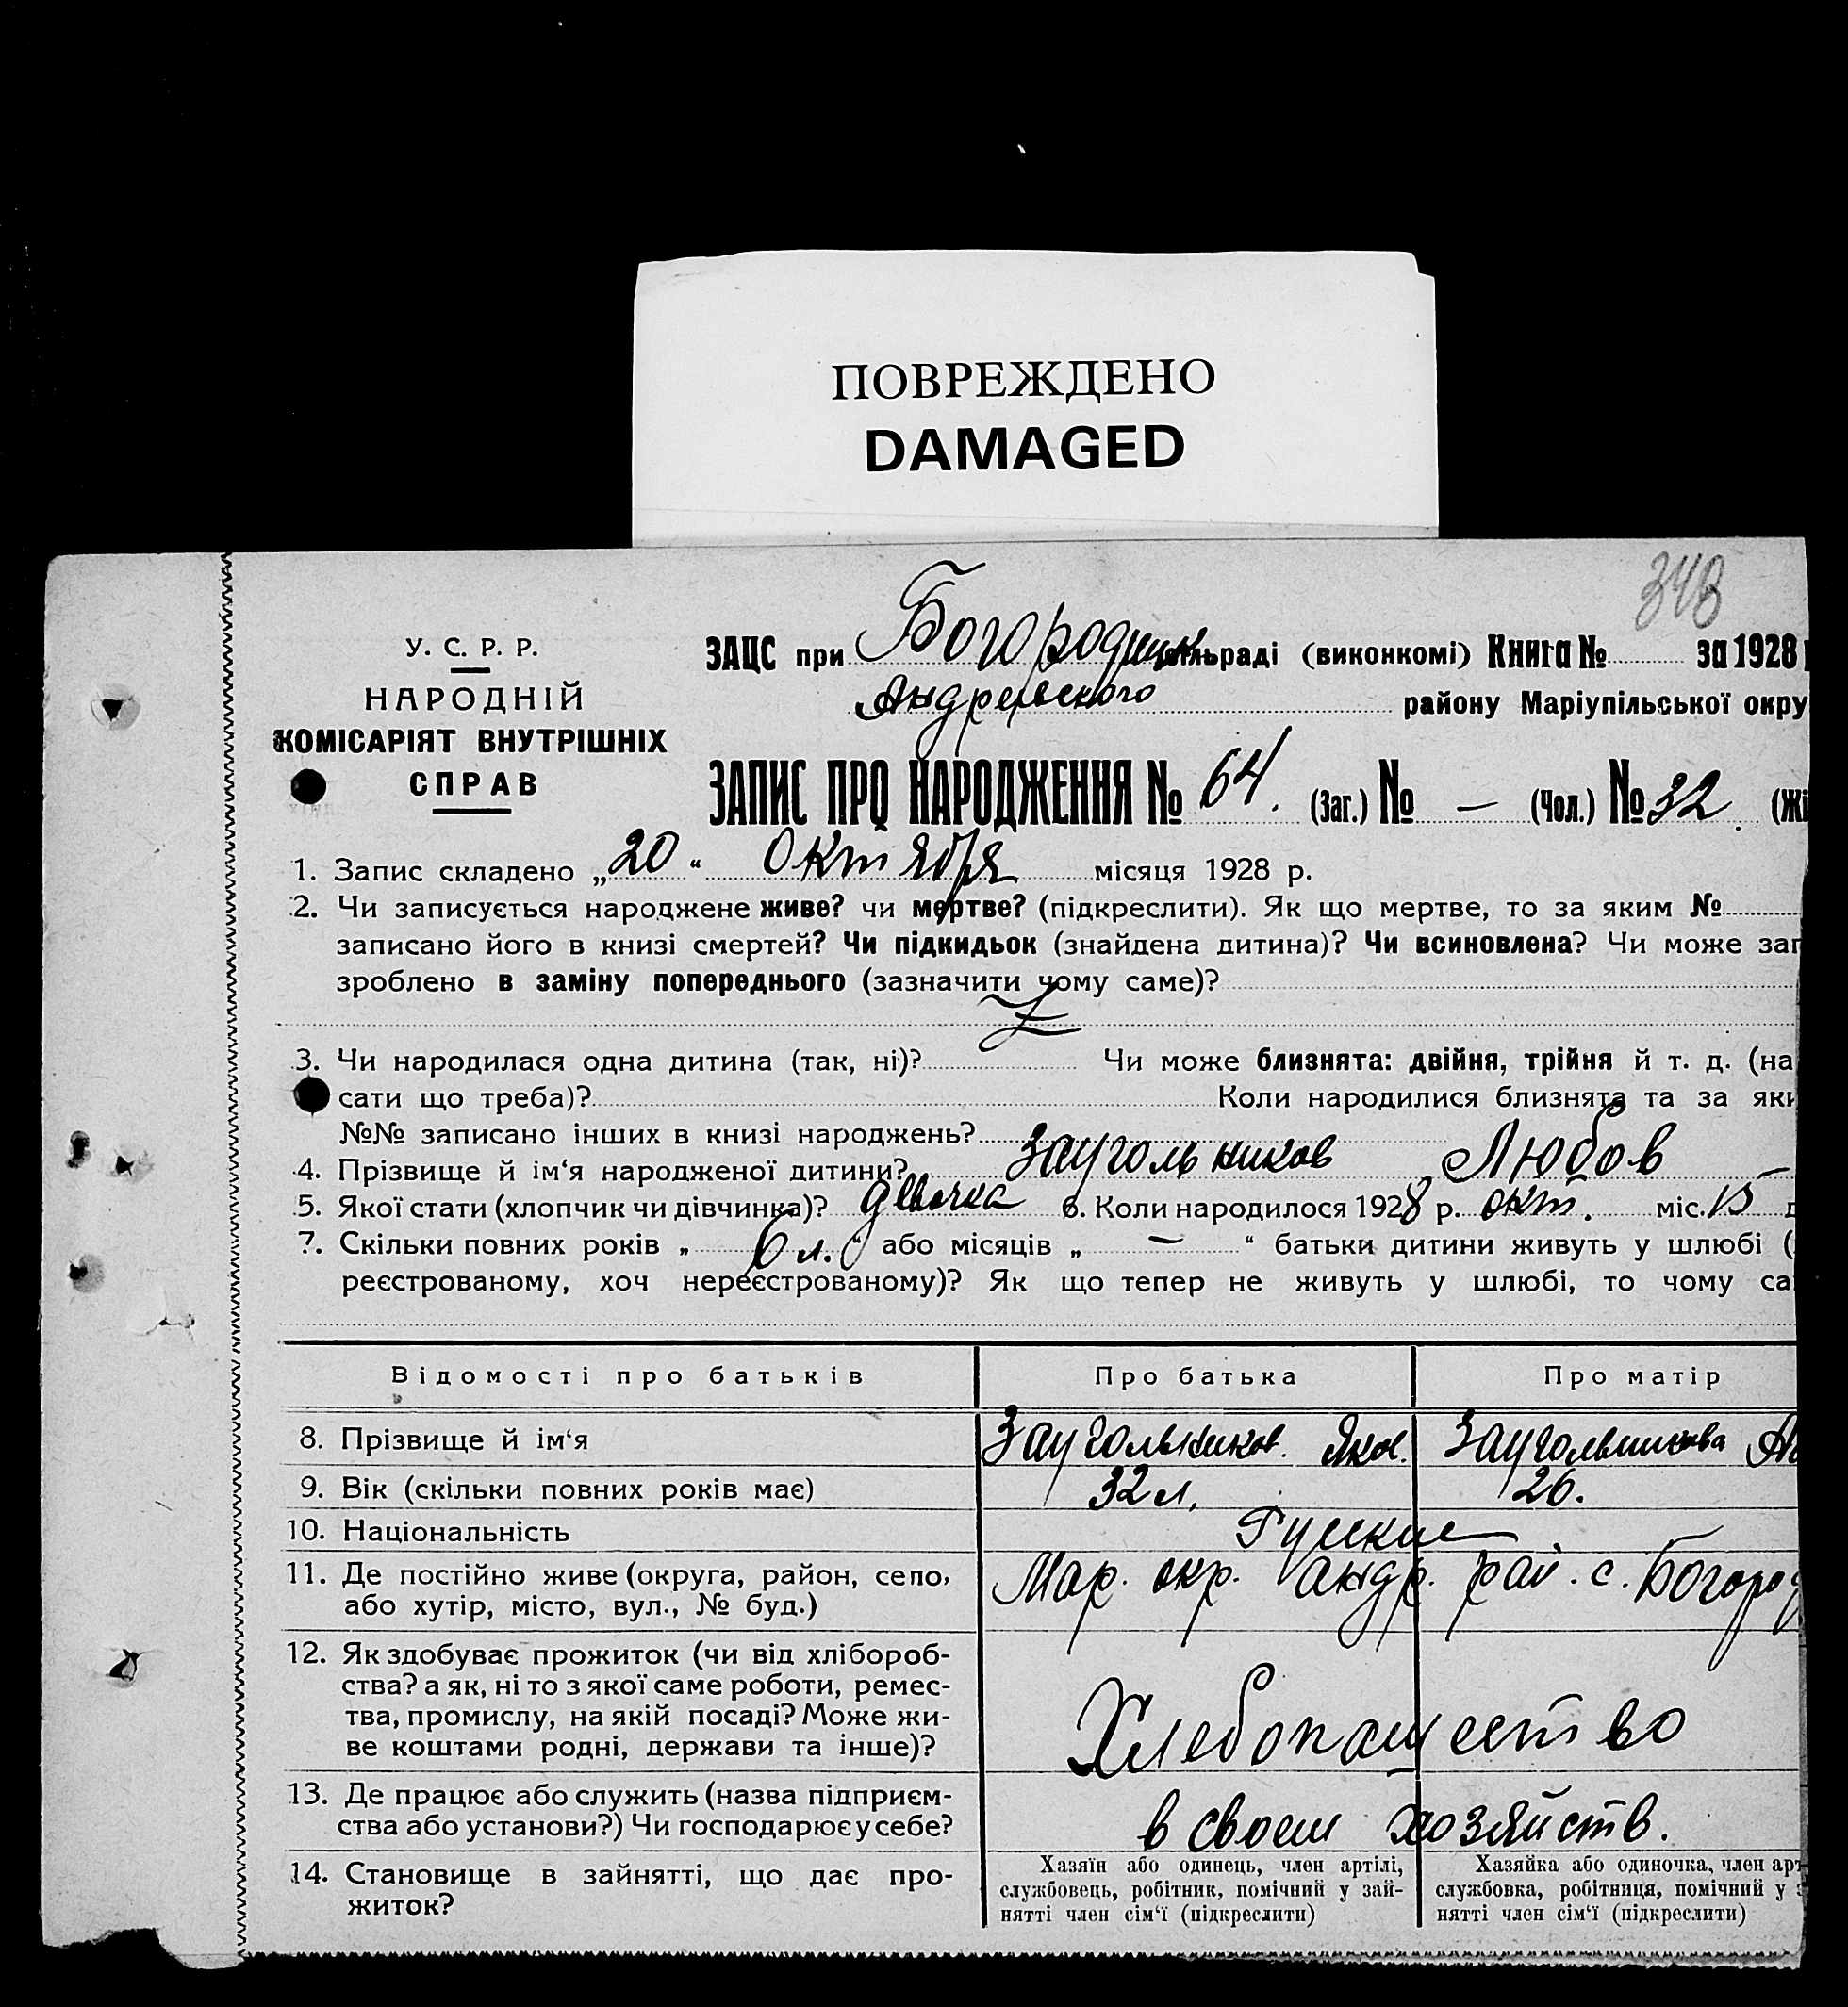 ПОВРЕЖДЕНО
DAMAGED
348
У. С. Р. Р.
НАРОДНІЙ
КОМІСАРІЯТ ВНУТРІШНІХ
СПРАВ
ЗАЦС при Богородицк сільраді (виконкомі) Книга № за 1928
Андреевского району Маріупільської окру
ЗАПИС ПРО НАРОДЖЕННЯ № 64. (Заг.) № — (Чол.) № 32. (Жі
1. Запис складено „20“ Октября місяця 1928 р.
2. Чи записується народжене живе? чи мертве? (підкреслити). Як що мертве, то за яким №
записано його в книзі смертей? Чи підкидьок (знайдена дитина)? Чи всиновлена? Чи може зап
зроблено в заміну попереднього (зазначити чому саме)?
3. Чи народилася одна дитина (так, ні)? Чи може близнята: двійня, трійня й т. д. (на
сати що треба)? Коли народилися близнята та за яки
№№ записано інших в книзі народжень?
4. Прізвище й ім‘я народженої дитини? Заугольников Любов —
5. Якої стати (хлопчик чи дівчинка)? девочка 6. Коли народилося 1928 р. окт. міс. 15 д
7. Скільки повних років „ 6 л. “ або місяців „ — “ батьки дитини живуть у шлюбі (
реєстрованому, хоч нереєстрованому)? Як що тепер не живуть у шлюбі, то чому са
Відомості про батьків Про батька Про матір
8. Прізвище й ім‘я Заугольников. Яков. Заугольникова Ан
9. Вік (скільки повних років має) 32 л. 26.
10. Національність Русские
11. Де постійно живе (округа, район, село, Мар. окр. Андр. рай. с. Богород
або хутір, місто, вул., № буд.)
12. Як здобуває прожиток (чи від хлібороб-
ства? а як, ні то з якої саме роботи, ремес-
тва, промислу, на якій посаді? Може жи- Хлебопашество
ве коштами родні, держави та інше)?
13. Де працює або служить (назва підприєм-
ства або установи?) Чи господарює у себе? в своем хозяйств.
14. Становище в зайнятті, що дає про-
житок?
Хазяїн або одинець, член артілі,
службовець, робітник, помічний у зай-
нятті член сім‘ї (підкреслити)
Хазяйка або одиночка, член арт
службовка, робітниця, помічний у з
нятті член сім‘ї (підкреслити)